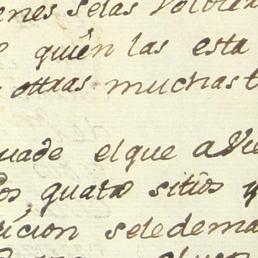 enes selas volvie
quien las esta
otras muchas t
uade el que avie
os quatro sitios y
icion sele dema